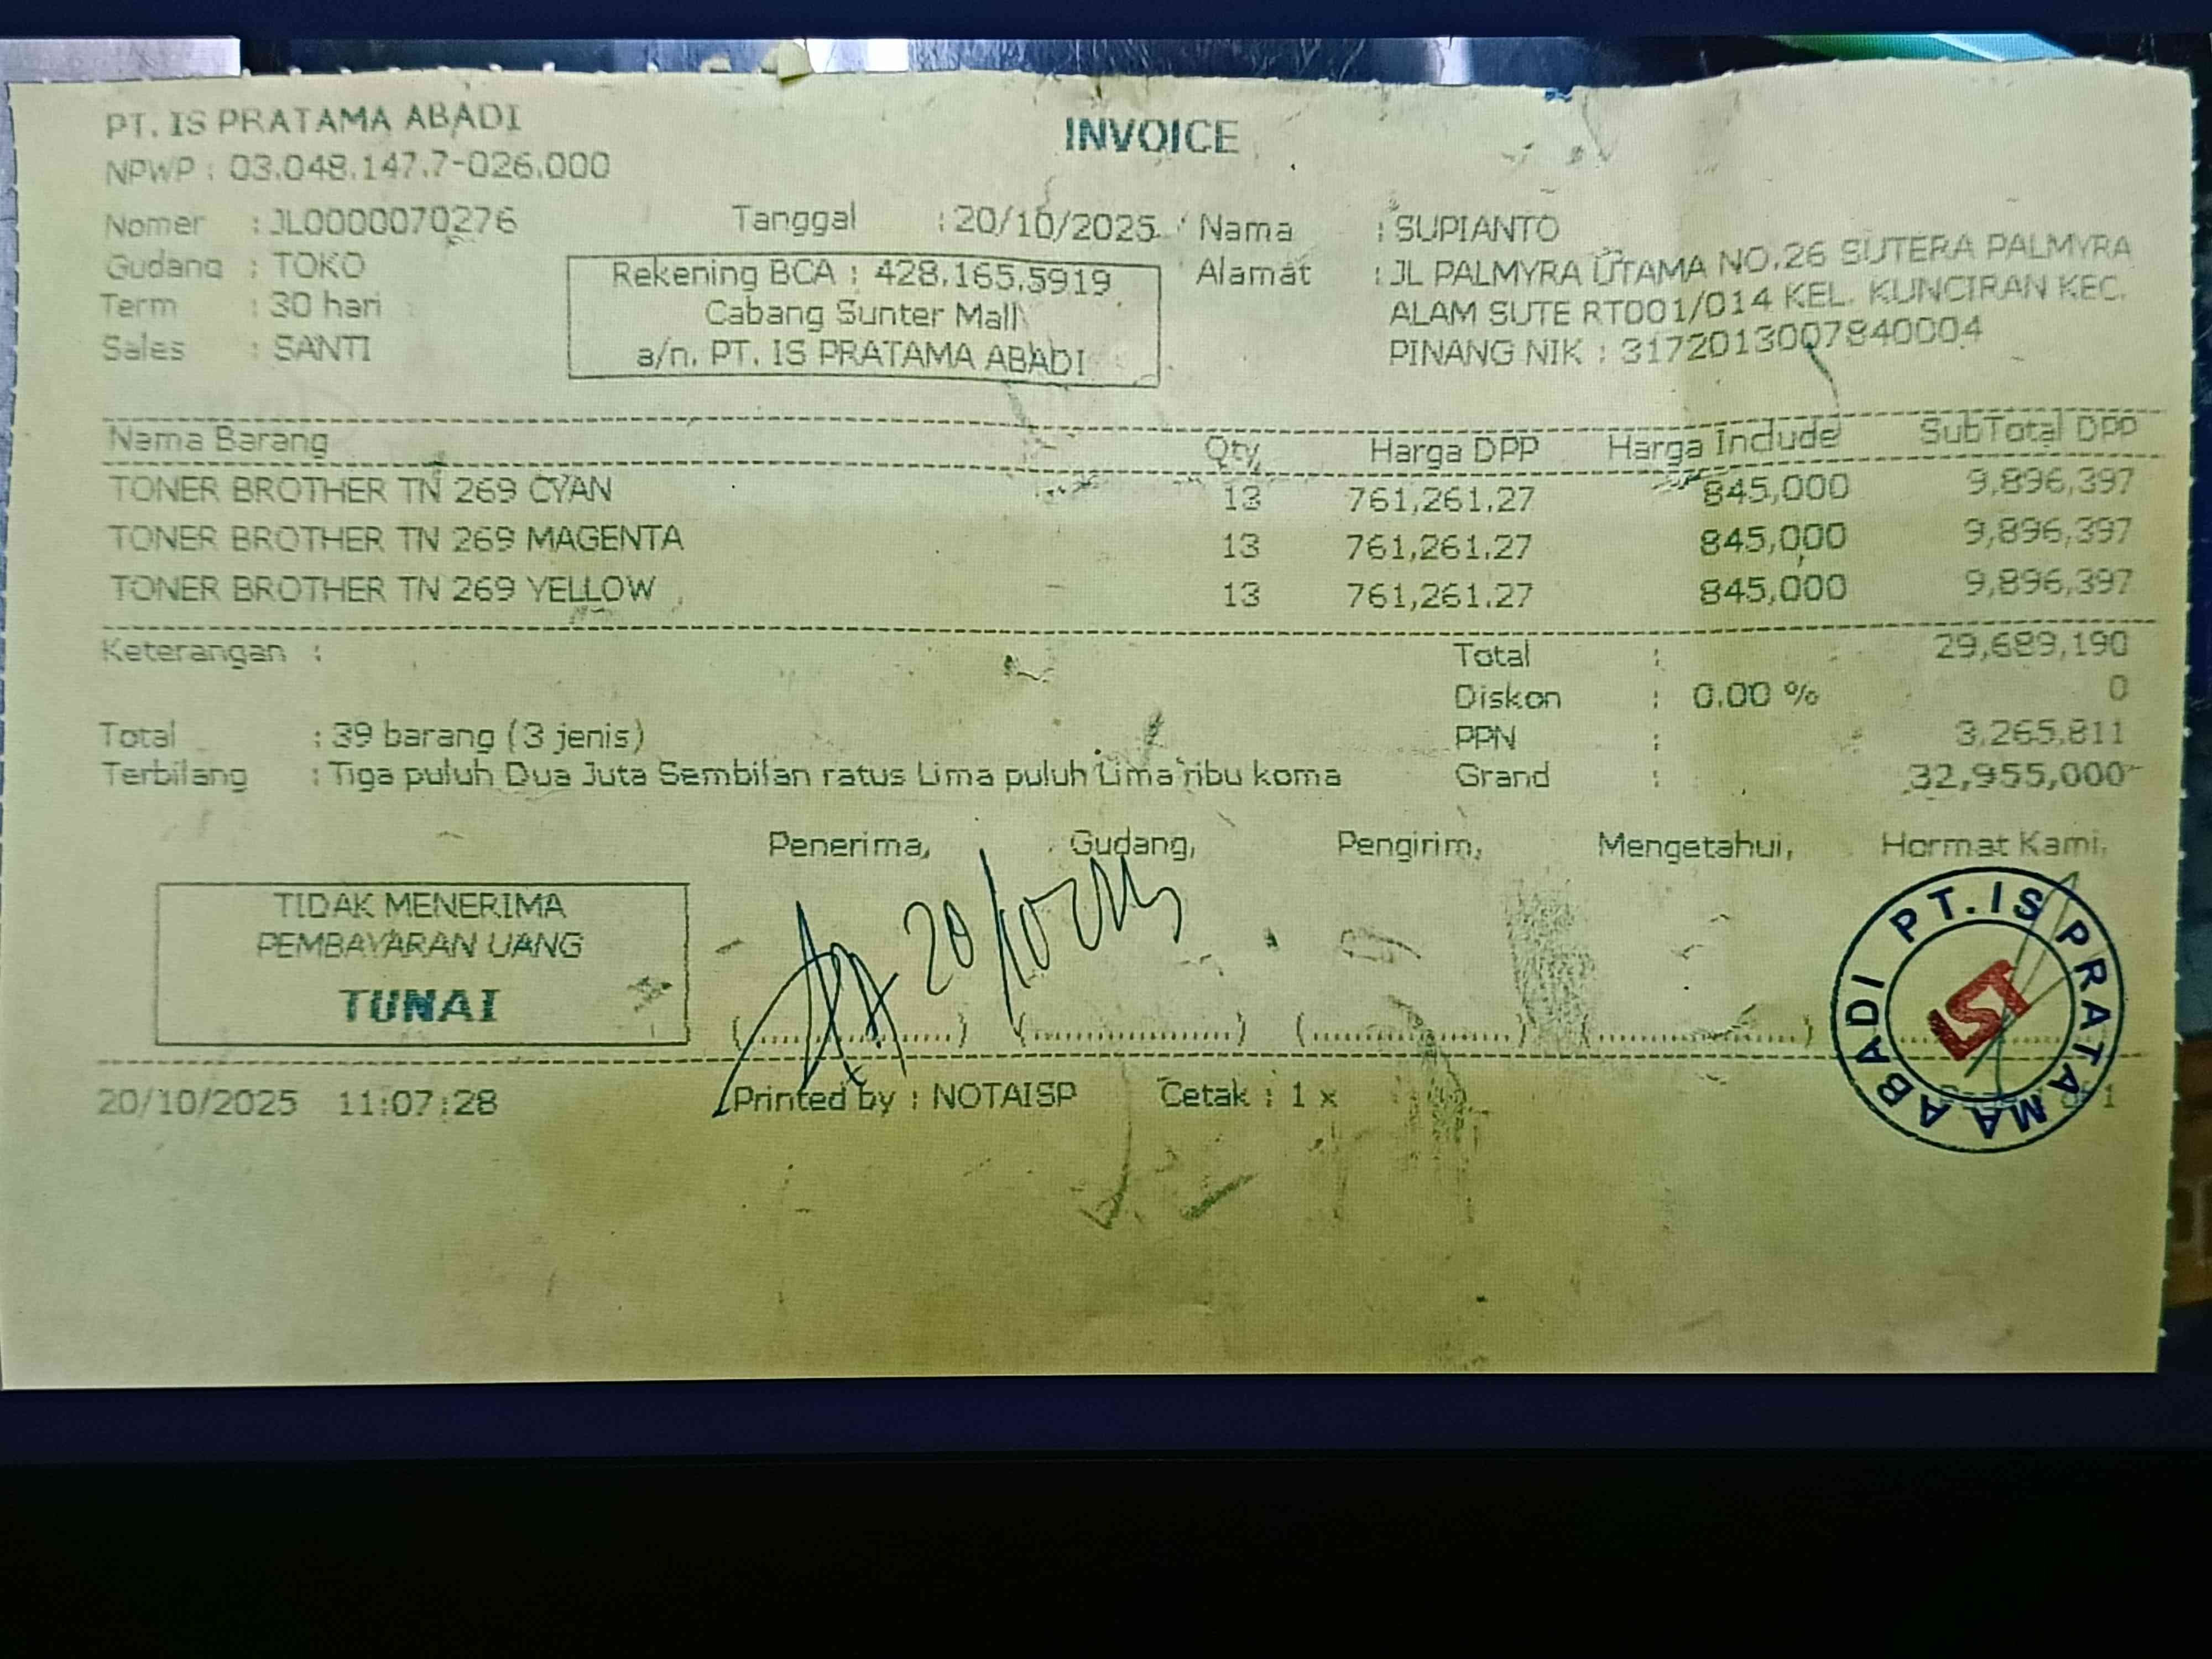 PT. IS PRATAMA ABADI
INVOICE
NPWP : 03.048.147.7-026.000
Nomer : JL0000070276
Gudang : TOKO
Term : 30 hari
Sales : SANTI
Tanggal : 20/10/2025
Rekening BCA : 428.165.5919
Cabang Sunter Mall
a/n. PT. IS PRATAMA ABADI
Nama : SUPIANTO
Alamat : JL PALMYRA UTAMA NO.26 SUTERA PALMYRA
ALAM SUTE RT001/014 KEL. KUNCIRAN KEC.
PINANG NIK : 3172013007840004
Nama Barang Qty Harga DPP Harga Include SubTotal DPP
TONER BROTHER TN 269 CYAN 13 761,261.27 845,000 9,896,397
TONER BROTHER TN 269 MAGENTA 13 761,261.27 845,000 9,896,397
TONER BROTHER TN 269 YELLOW 13 761,261.27 845,000 9,896,397
Keterangan :
Total : 29,689,190
Diskon : 0.00 % 0
Total : 39 barang (3 jenis)
PPN : 3,265,811
Terbilang : Tiga puluh Dua Juta Sembilan ratus Lima puluh Lima ribu koma
Grand : 32,955,000
Penerima, Gudang, Pengirim, Mengetahui, Hormat Kami,
TIDAK MENERIMA
PEMBAYARAN UANG
TUNAI
20/10 2025
PT. IS PRATAMA ABADI
20/10/2025 11:07:28 Printed by : NOTAISP Cetak : 1 x